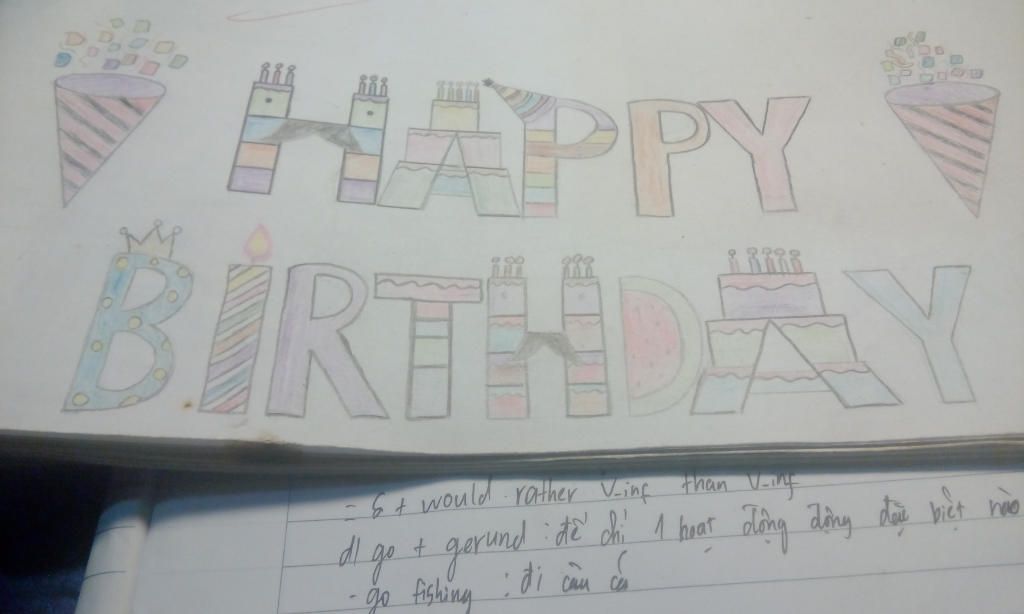 HAPPY
BIRTHDAY
= S + would rather V-inf than V-inf
d) go + gerund : để chỉ 1 hoạt động động đặc biệt nào
- go fishing : đi câu cá